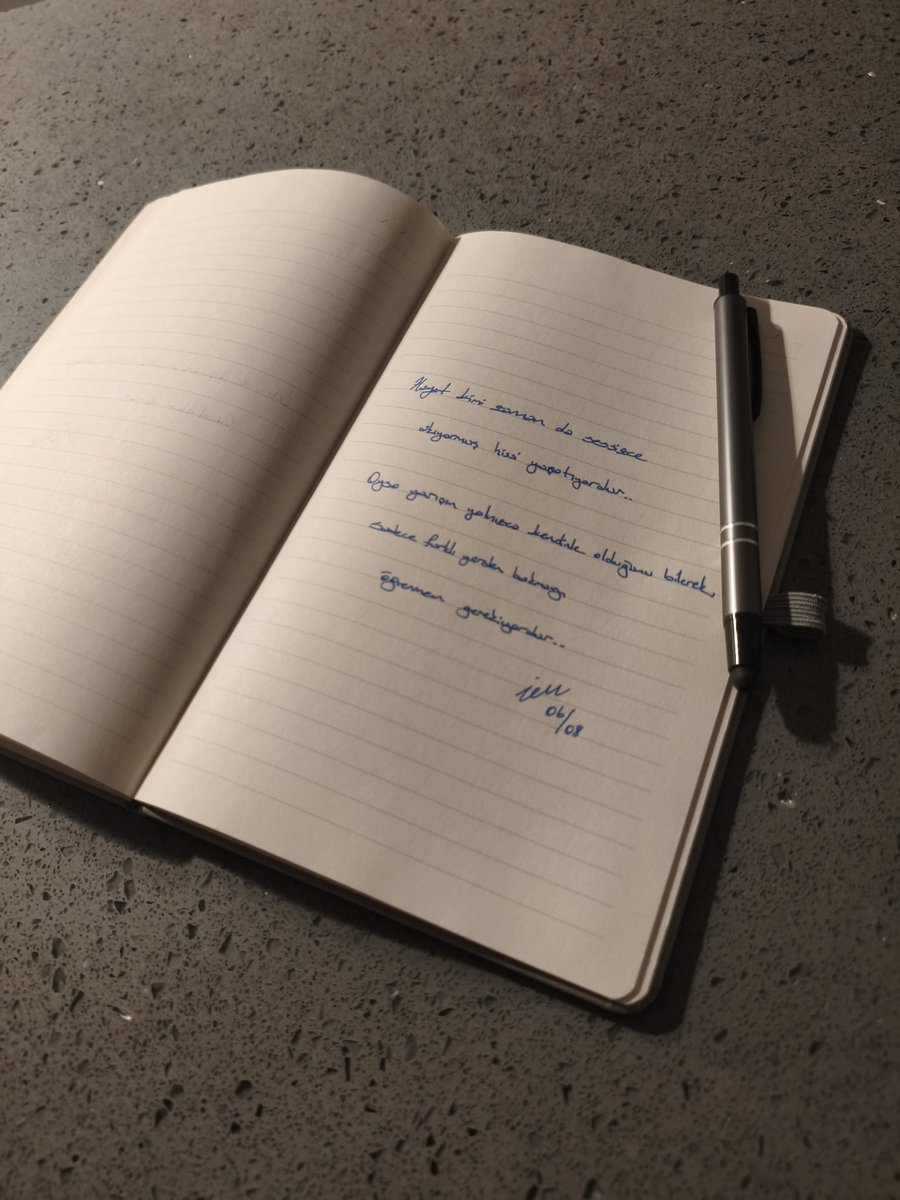 Hayat kimi zaman da sessizce
akıyormuş hissi yaşatıyordur..
Oysa yarışın yalnızca kendinle olduğunu bilerek,
sadece farklı yerden bakmayı
öğrenmen gerekiyordur..
06/08